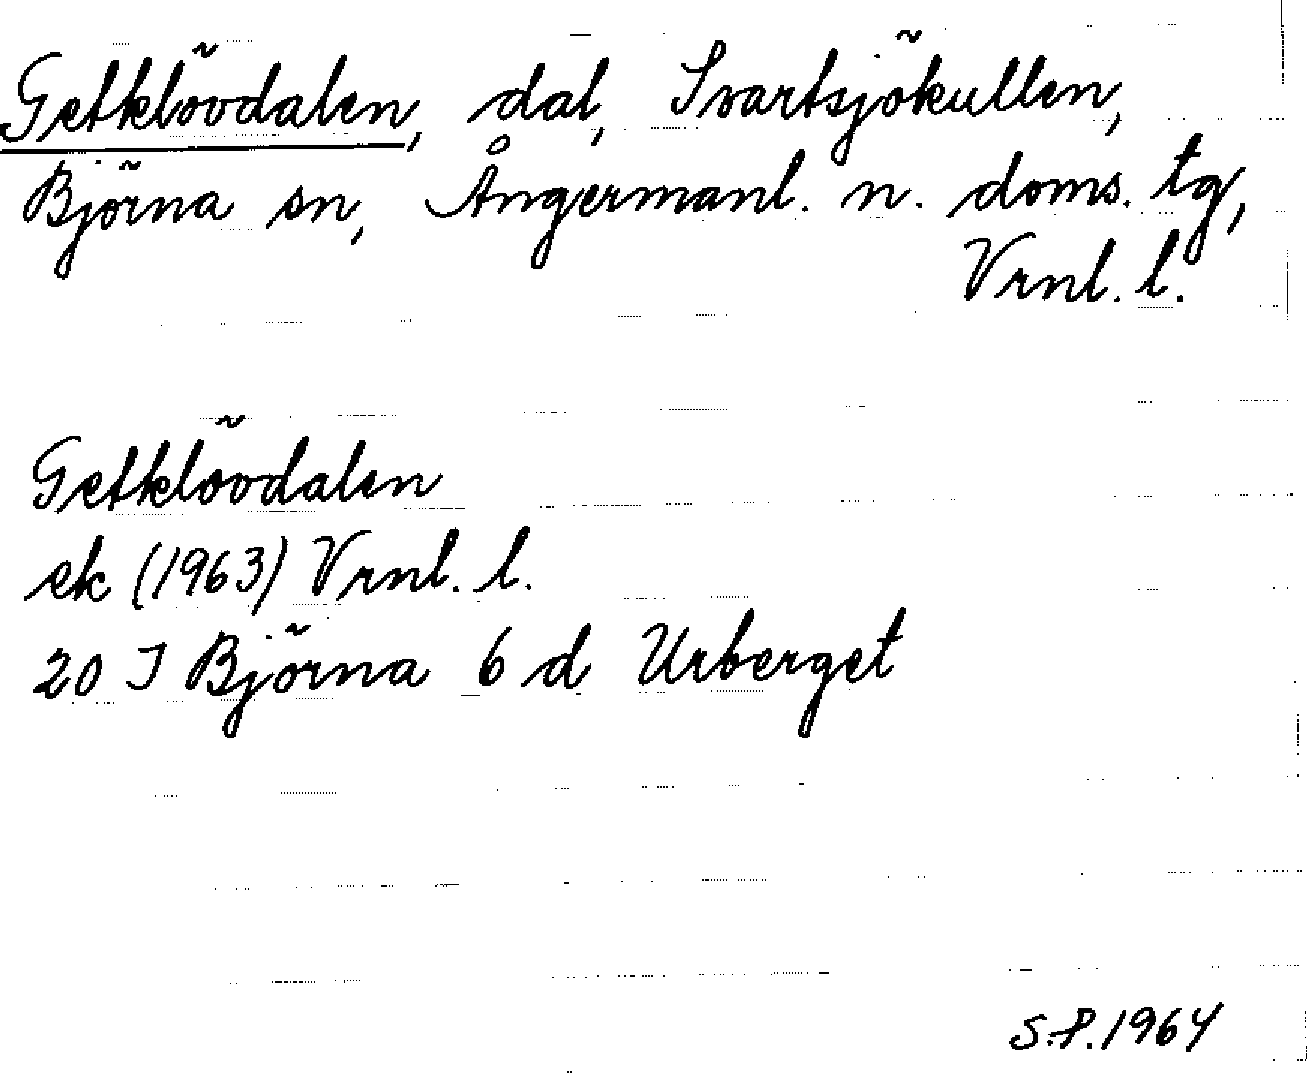 Getklövdalen, dal, Svartsjökullen,
Björna sn, Ångermanl. n. doms. tg,
Vrnl. l.
Getklövdalen
ek (1963) Vrnl. l.
20 I Björna 6 d Urberget
S.P. 1964